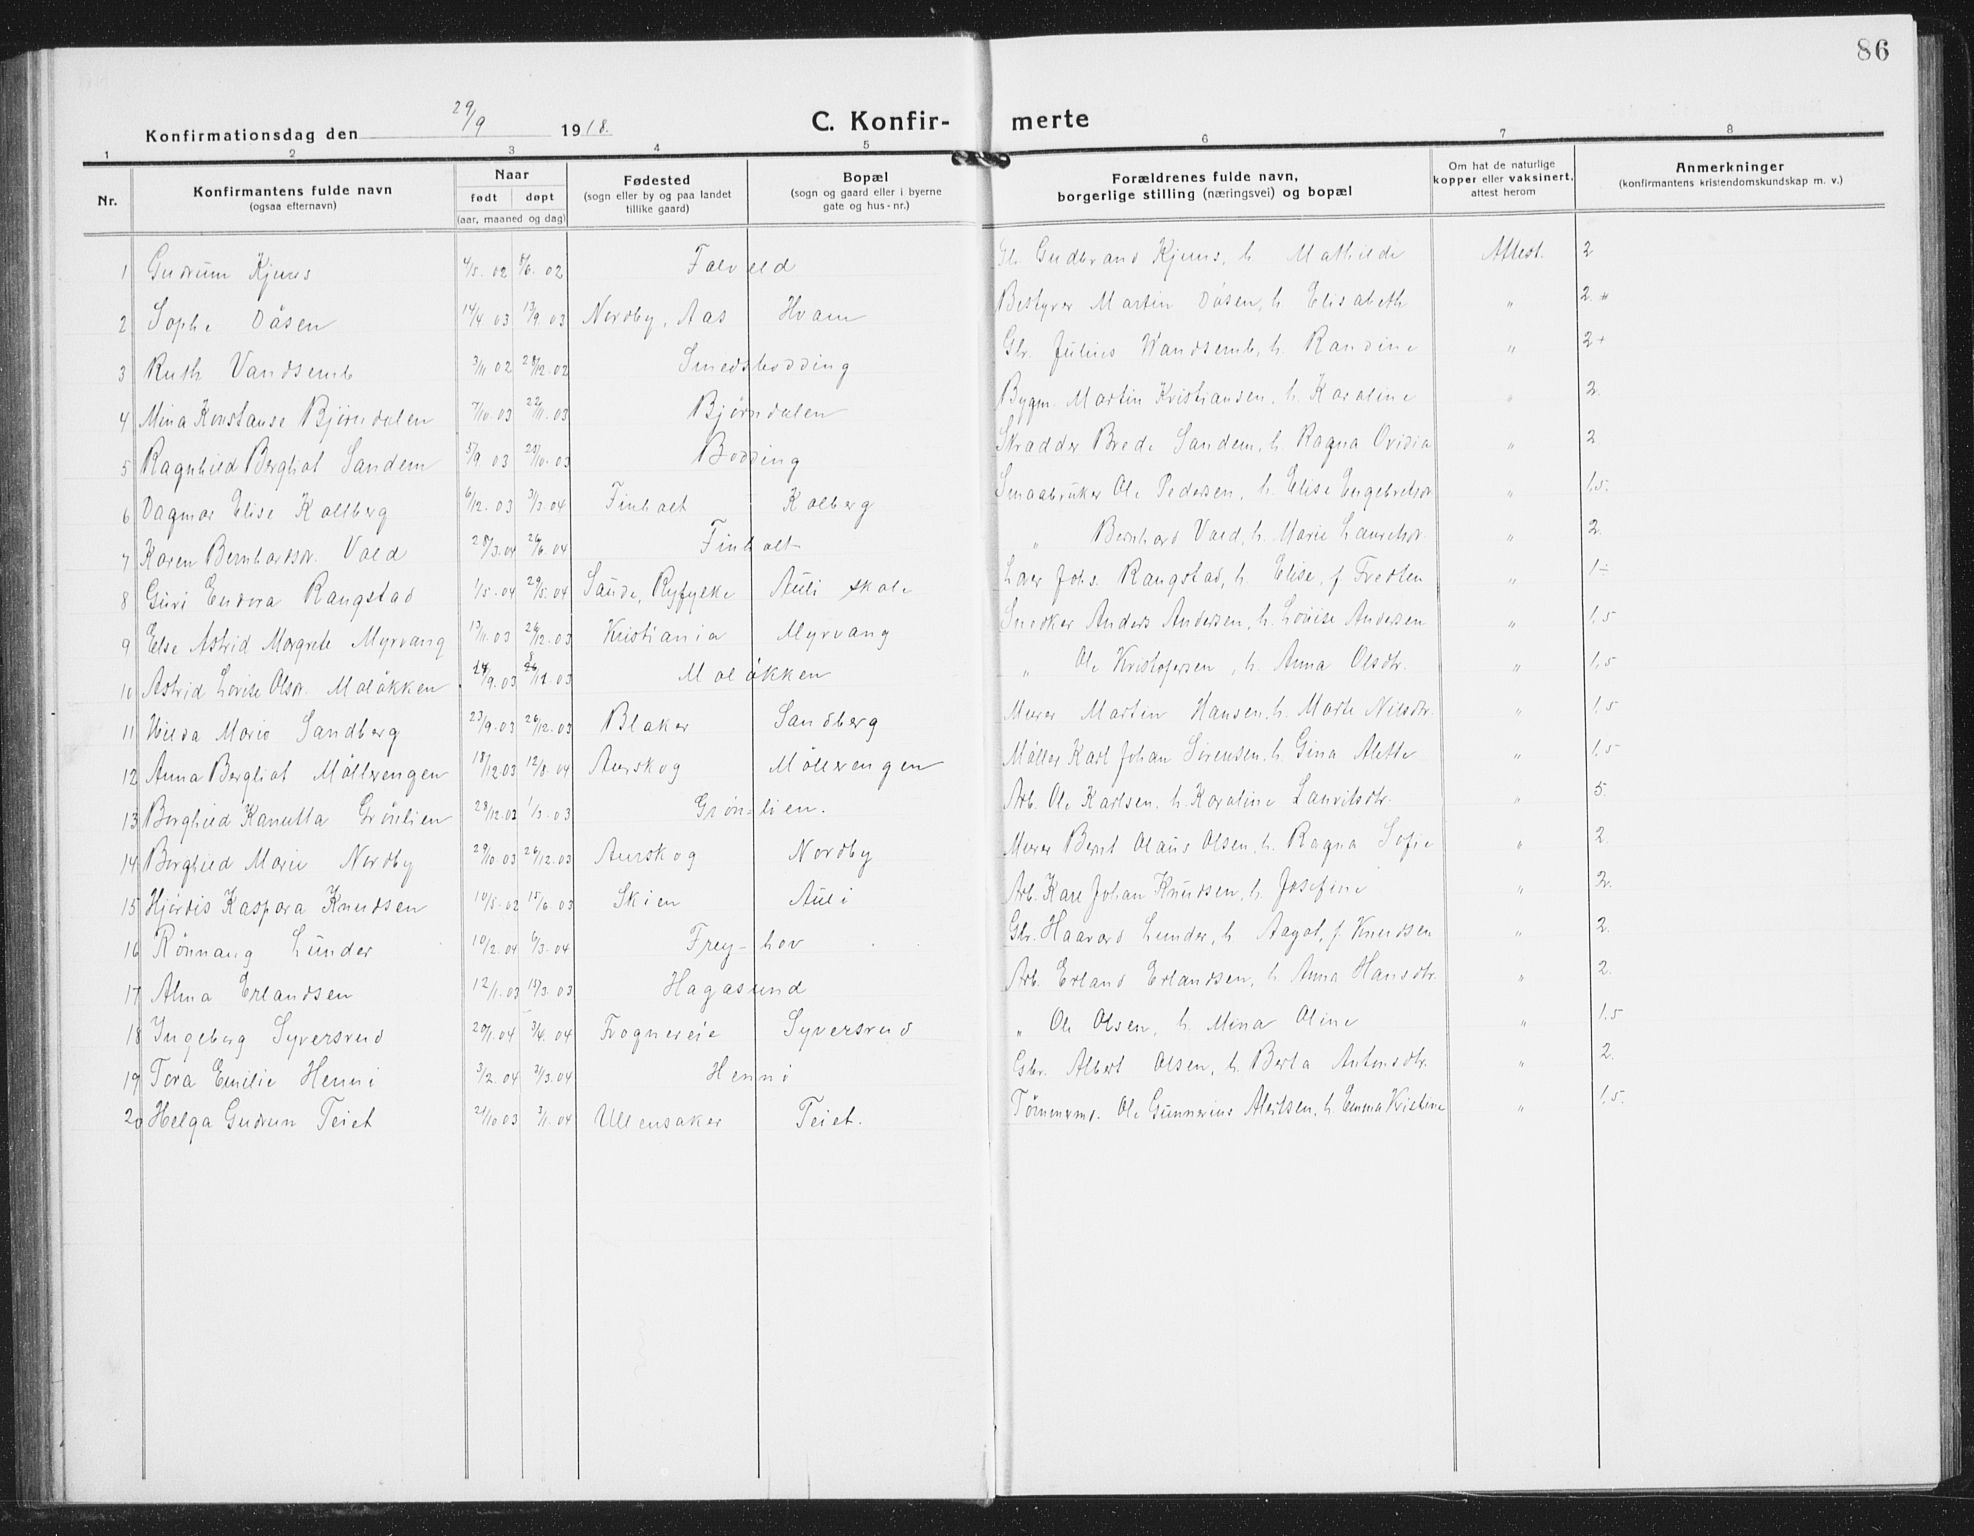 86
Konfirmationsdag den 29/9 1918.
C. Konfirmerte
1 2 3 4 5 6 7 8
Nr.
Konfirmantens fulde navn
(ogsaa efternavn)
Naar
født døpt
(aar, maaned og dag)
Fødested
(sogn eller by og paa landet
tillike gaard)
Bopæl
(sogn og gaard eller i byerne
gate og hus-nr.)
Forældrenes fulde navn,
borgerlige stilling (næringsvei) og bopæl
Om hat de naturlige
kopper eller vaksinert,
attest herom
Anmerkninger
(konfirmantens kristendomskundskap m. v.)
1 Gudrum Kjuus 4/5 02 8/6 02 Falveld Gudbrand Kjuus, h. Mathilde Attest. 2
2 Sophe Dåsen 14/4 03 13/9 03 Nordby, Aas Hvam Bestyrer Martin Dåsen, h. Elisabeth " 2+
3 Ruth Vandsemb 3/11 02 28/12 02 Smedsbodding Gbr. Julius Wandsemb, h. Randine " 2+
4 Mina Konstanse Bjørndalen 7/10 03 22/11 03 Bjørndalen Bygm. Martin Kristiansen, h. Karoline " 2.
5 Ragnhild Bergliot Sandem 5/9 03 25/10 03 Bodding Skradder Brede Sandem, h. Ragna Ovidia " 2
6 Dagmar Elise Kallberg 6/12 03 3/3 04 Finholt Kalberg Smaabruker Ole Pedersen, h. Elise Engebretsdr " 1.5.
7 Karen Bernhardsdr. Vald 28/3 04 26/6 04 Finholt " Bernhard Vald, h. Marie Lauretsdr. " 2.
8 Guri Endora Rangstad 1/5 04 29/5 04 Saude, Ryfylke Auli skole Lærer Johs. Rangstad, h. Elise, f. Tredten " 1÷
9 Else Astrid Margrete Myrvang 13/11 03 26/12 03 Kristiania Myrvang Snedker Anders Andersen, h. Lovise Andersen " 1,5
10 Astrid Lovise Olsdr. Moløkken 14/9 03 03 Moløkken " Ole Kristofersen, h. Anna Olsdtr. " 1,5
11 Hilda Marie Sandberg 23/9 03 26/12 03 Blaker Sandberg Murer Martin Hansen, h. Marte Nilsdtr. " 1,5
12 Anna Bergliot Møllerengen 18/12 03 12/8 04 Aurskog Møllerengen Møller Karl Johan Sørensen, h. Gina Alette " 1,5
13 Borghild Kanutta Grønlien 28/12 02 1/3 03 Grønlien. Arb. Ole Karlsen, h. Karoline Lauritsdtr. " 5.
14 Borghild Marie Nordby 29/10 03 26/12 03 Aurskog Nordby Murer Bernt Olaus Olsen, h. Ragna Sofie " 2.
15 Hjørdis Kaspara Knudsen 10/5 02 15/6 03 Skien Auli Arb. Karl Johan Knudsen, h. Josefine " 2.
16 Rønnaug Lunder 10/2 04 6/3 04 Frey-hov Gbr. Haavard Lunder, h. Aagot, f. Knudsen " 2.
17 Alma Erlandsen 12/1 03 15/3 03 Hagasund Arb. Erland Erlandsen, h. Anna Hansdtr. " 2.
18 Ingeborg Syversrud 20/1 04 3/4 04 Frognereie Syversrud " Ole Olsen, h. Mina Oline " 1,5
19 Tora Emilie Henni 3/2 04 3/3 04 Henni Gbr. Albert Olsen, h. Berta Antonsdtr. " 2.
20 Helga Gudrun Teiet 24/10 03 3/1 04 Ullensaker Teiet. Tømmermd. Ole Gunnerius Alertsen, h. Emma Kristine " 1,5.